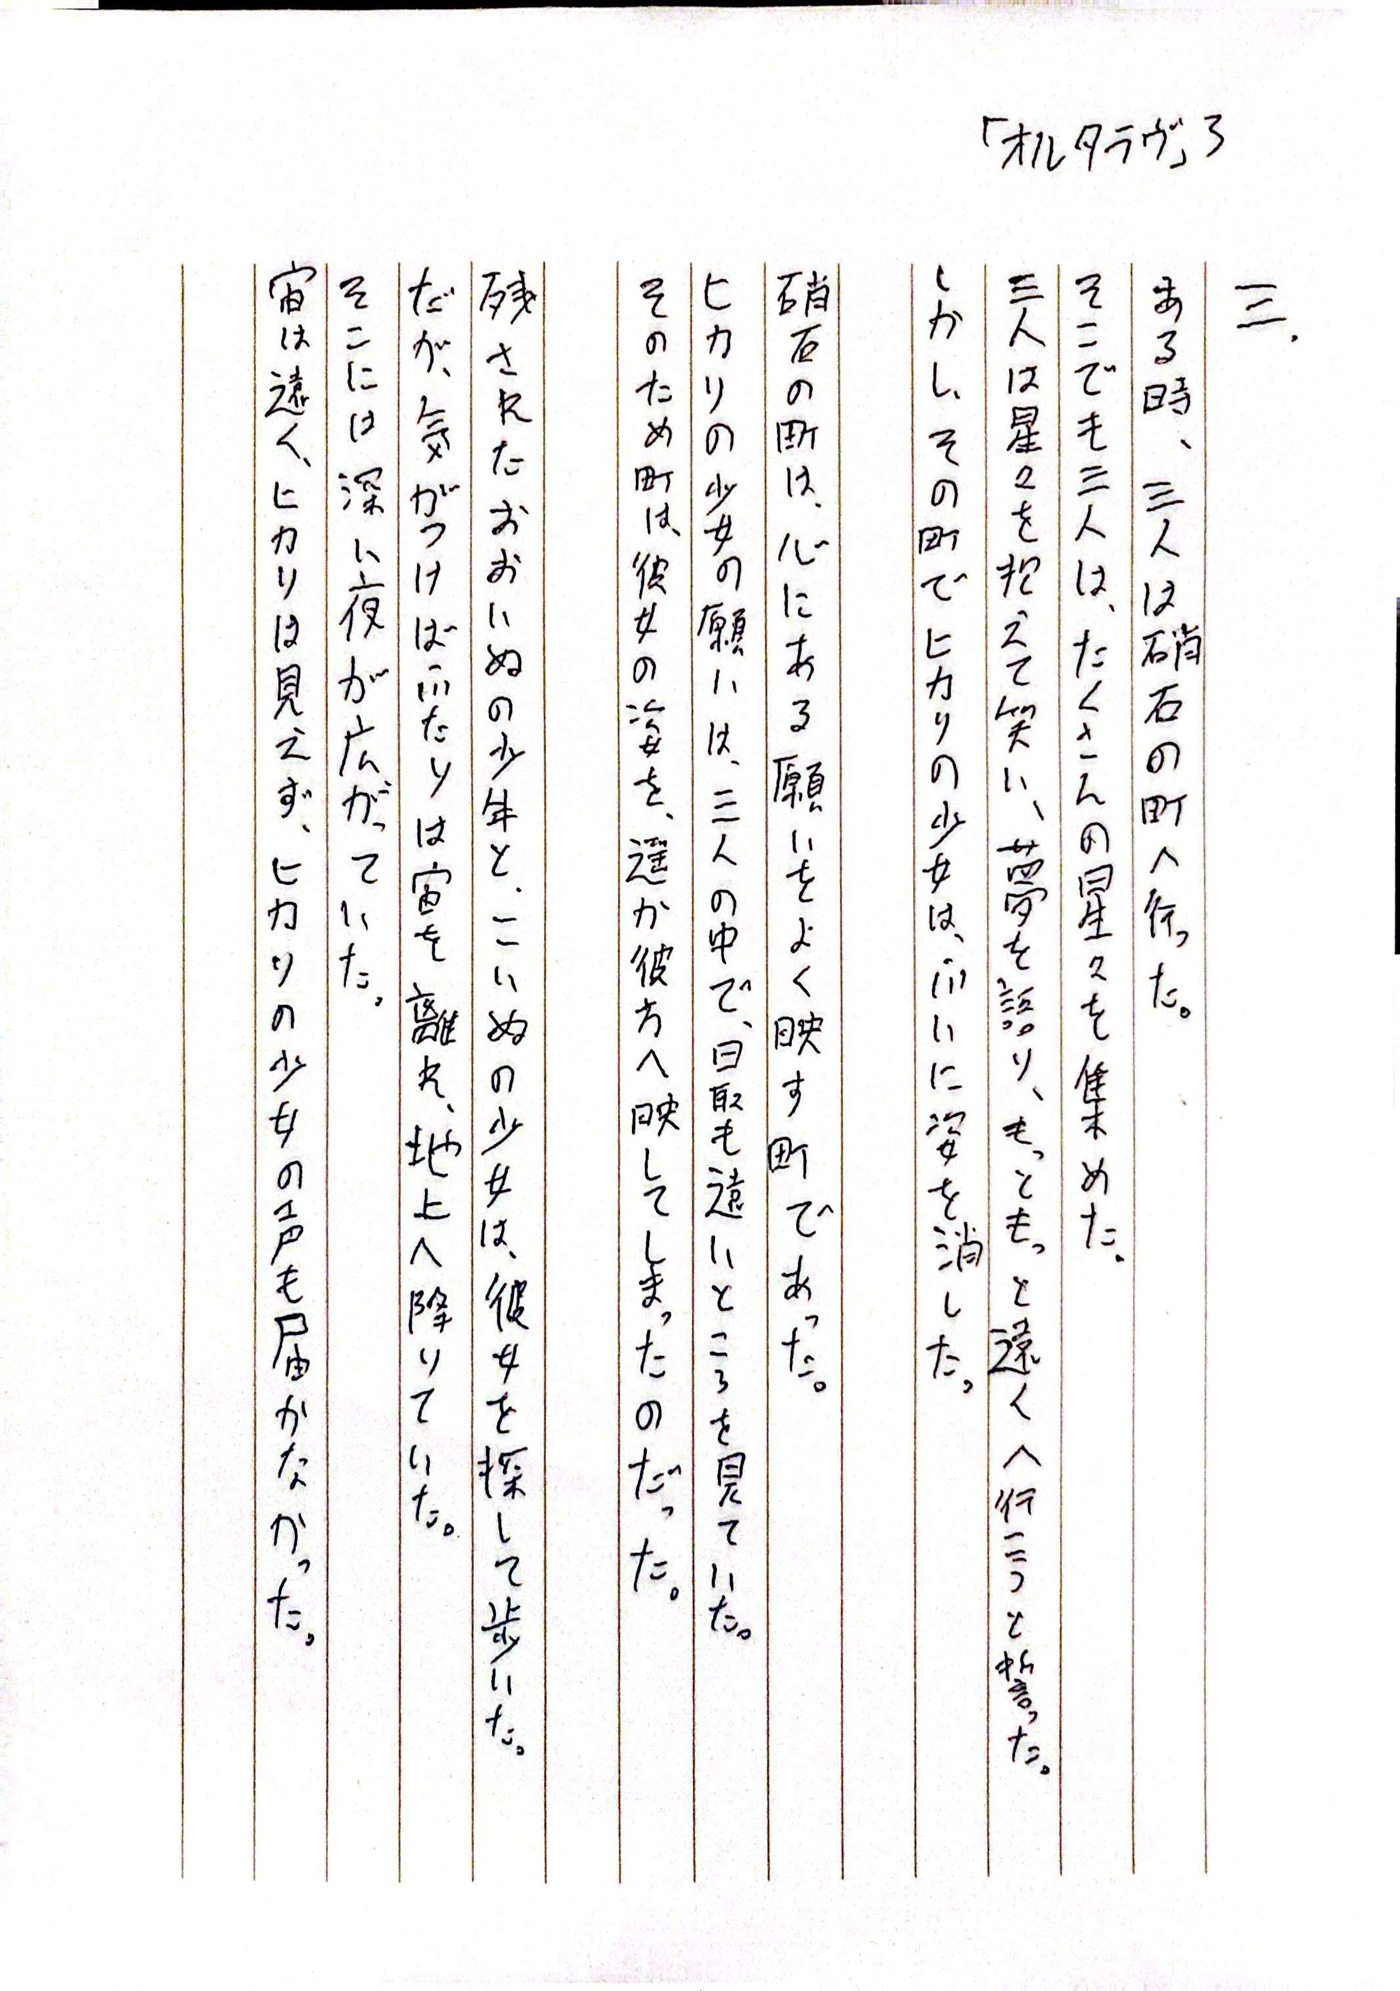 「オルタラヴ」3
三.
ある時、三人は硝石の町へ行った。
そこでも三人は、たくさんの星々を集めた。
三人は星々を抱えて笑い、夢を語り、もっともっと遠くへ行こうと誓った。
しかし、その町でヒカリの少女は、ふいに姿を消した。
硝石の町は、心にある願いをよく映す町であった。
ヒカリの少女の願いは、三人の中で、最も遠いところを見ていた。
そのため町は、彼女の姿を、遥か彼方へ映してしまったのだった。
残されたおおいぬの少年と、こいぬの少女は、彼女を探して歩いた。
だが、気がつけばふたりは宙を離れ、地上へ降りていた。
そこには深い夜が広がっていた。
宙は遠く、ヒカリは見えず、ヒカリの少女の声も届かなかった。